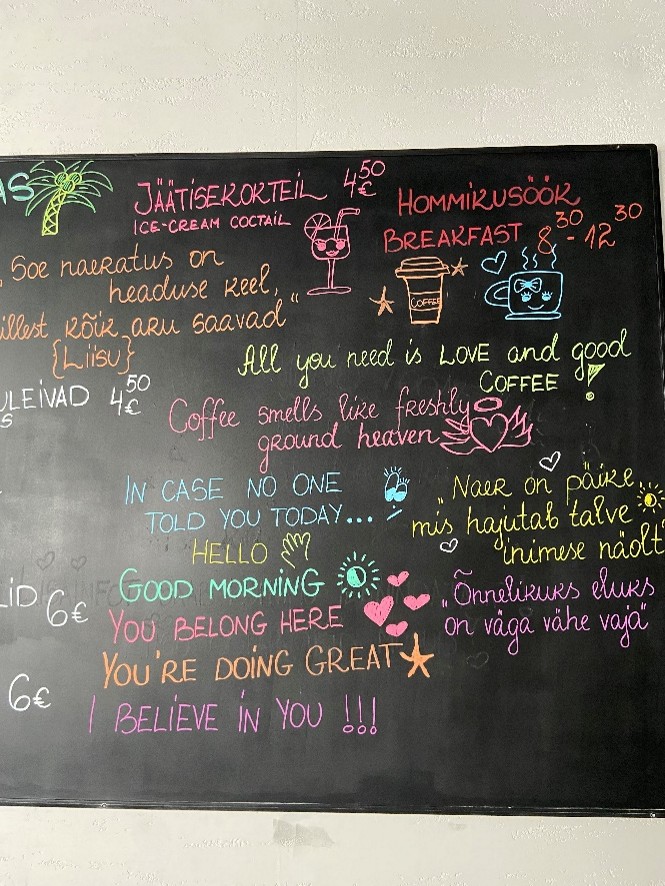 AS
JÄÄTISEKOKTEIL 4 50 €
ICE-CREAM COCTAIL
HOMMIKUSÖÖK
BREAKFAST 8 30 - 12 30
COFFEE
„Soe naeratus on
headuse keel,
illest kõik aru saavad“
{Liisu}
All you need is LOVE and good
COFFEE !
ULEIVAD 4 50 €
S
Coffee smells like freshly
ground heaven
IN CASE NO ONE
TOLD YOU TODAY...
HELLO
GOOD MORNING
YOU BELONG HERE
YOU'RE DOING GREAT
I BELIEVE IN YOU !!!
„Naer on päike,
mis hajutab talve
inimese näolt
„Õnnelikuks eluks
on väga vähe vaja“
LID 6€
6€